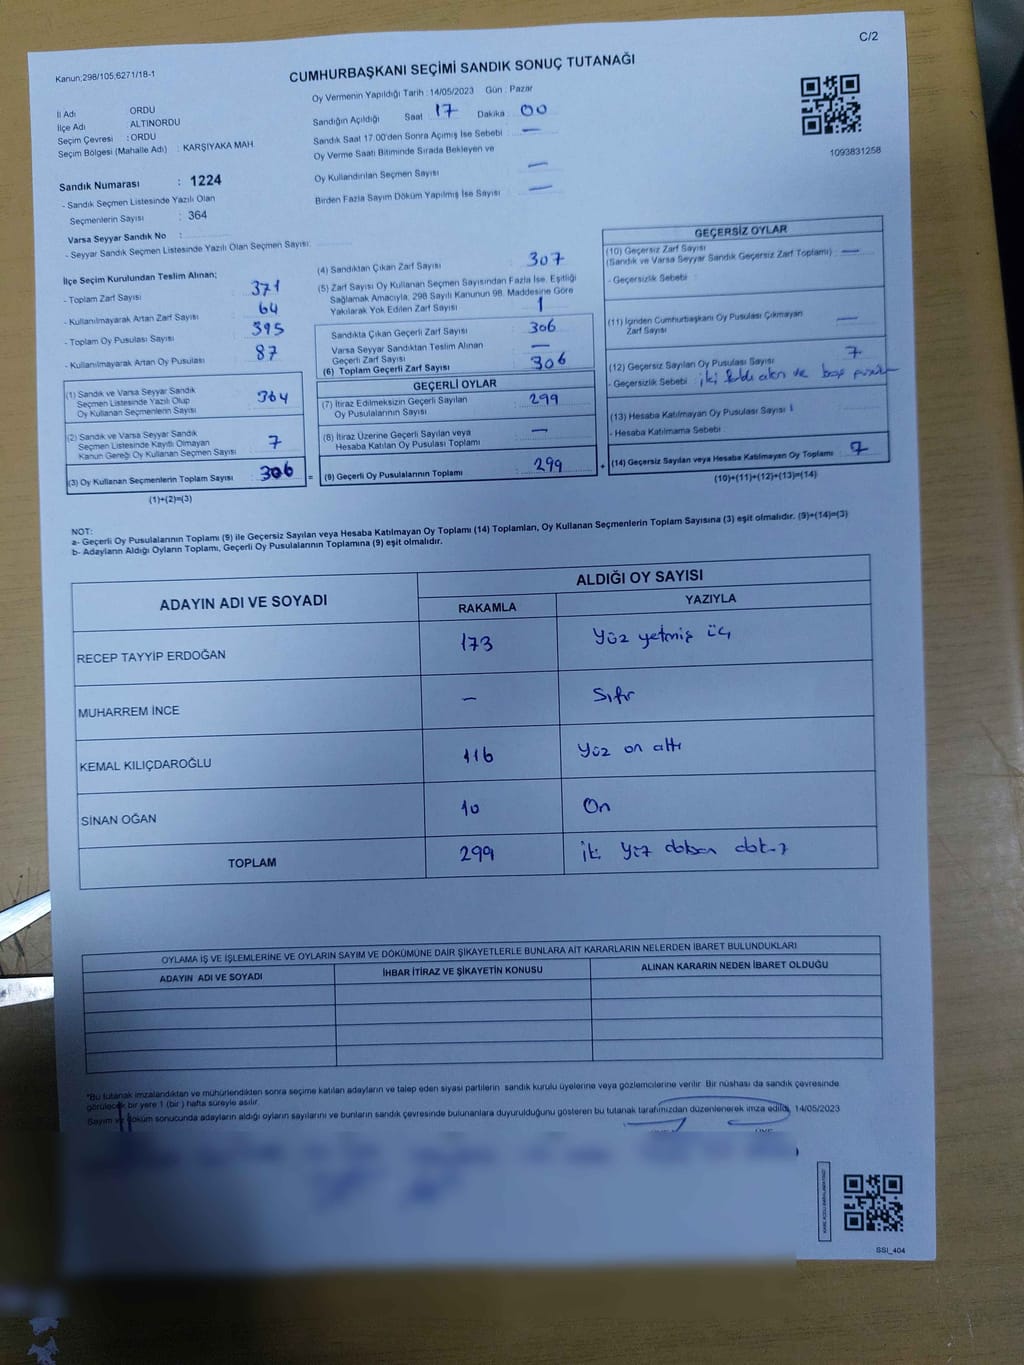 C/2
Kanun;298/105,6271/18-1
CUMHURBAŞKANI SEÇİMİ SANDIK SONUÇ TUTANAĞI
Oy Vermenin Yapıldığı Tarih : 14/05/2023 Gün : Pazar
İl Adı ORDU
İlçe Adı ALTINORDU
Seçim Çevresi : ORDU
Seçim Bölgesi (Mahalle Adı) : KARŞIYAKA MAH
Sandığın Açıldığı Saat 17 Dakika 00
Sandık Saat 17.00'den Sonra Açımış İse Sebebi : —
Oy Verme Saati Bitiminde Sırada Bekleyen ve
Oy Kullandırılan Seçmen Sayısı : —
Birden Fazla Sayım Döküm Yapılmış İse Sayısı : —
1093831258
Sandık Numarası : 1224
- Sandık Seçmen Listesinde Yazılı Olan
Seçmenlerin Sayısı : 364
Varsa Seyyar Sandık No :
- Seyyar Sandık Seçmen Listesinde Yazılı Olan Seçmen Sayısı:
İlçe Seçim Kurulundan Teslim Alınan;
- Toplam Zarf Sayısı : 371
- Kullanılmayarak Artan Zarf Sayısı : 64
- Toplam Oy Pusulası Sayısı : 395
- Kullanılmayarak Artan Oy Pusulası : 87
(1) Sandık ve Varsa Seyyar Sandık
Seçmen Listesinde Yazılı Olup
Oy Kullanan Seçmenlerin Sayısı : 364
(2) Sandık ve Varsa Seyyar Sandık
Seçmen Listesinde Kayıtlı Olmayan
Kanun Gereği Oy Kullanan Seçmen Sayısı : 7
(3) Oy Kullanan Seçmenlerin Toplam Sayısı : 306 =
(1)+(2)=(3)
(4) Sandıktan Çıkan Zarf Sayısı : 307
(5) Zarf Sayısı Oy Kullanan Seçmen Sayısından Fazla İse, Eşitliği
Sağlamak Amacıyla, 298 Sayılı Kanunun 98. Maddesine Göre
Yakılarak Yok Edilen Zarf Sayısı : 1
Sandıkta Çıkan Geçerli Zarf Sayısı : 306
Varsa Seyyar Sandıktan Teslim Alınan
Geçerli Zarf Sayısı : —
(6) Toplam Geçerli Zarf Sayısı : 306
GEÇERLİ OYLAR
(7) İtiraz Edilmeksizin Geçerli Sayılan
Oy Pusulalarının Sayısı : 299
(8) İtiraz Üzerine Geçerli Sayılan veya
Hesaba Katılan Oy Pusulası Toplamı : —
(9) Geçerli Oy Pusulalarının Toplamı : 299 +
GEÇERSİZ OYLAR
(10) Geçersiz Zarf Sayısı
(Sandık ve Varsa Seyyar Sandık Geçersiz Zarf Toplamı) : —
- Geçersizlik Sebebi :
(11) İçinden Cumhurbaşkanı Oy Pusulası Çıkmayan
Zarf Sayısı : —
(12) Geçersiz Sayılan Oy Pusulası Sayısı : 7
- Geçersizlik Sebebi : iki ve
(13) Hesaba Katılmayan Oy Pusulası Sayısı :
- Hesaba Katılmama Sebebi :
(14) Geçersiz Sayılan veya Hesaba Katılmayan Oy Toplamı : 7
(10)+(11)+(12)+(13)=(14)
NOT:
a- Geçerli Oy Pusulalarının Toplamı (9) ile Geçersiz Sayılan veya Hesaba Katılmayan Oy Toplamı (14) Toplamları, Oy Kullanan Seçmenlerin Toplam Sayısına (3) eşit olmalıdır. (9)+(14)=(3)
b- Adayların Aldığı Oyların Toplamı, Geçerli Oy Pusulalarının Toplamına (9) eşit olmalıdır.
ADAYIN ADI VE SOYADI ALDIĞI OY SAYISI
RAKAMLA YAZIYLA
RECEP TAYYİP ERDOĞAN 173 Yüz yetmiş üç
MUHARREM İNCE — Sıfır
KEMAL KILIÇDAROĞLU 116 Yüz on altı
SİNAN OĞAN 10 On
TOPLAM 299 iki yüz doksan dokuz
OYLAMA İŞ VE İŞLEMLERİNE VE OYLARIN SAYIM VE DÖKÜMÜNE DAİR ŞİKAYETLERLE BUNLARA AİT KARARLARIN NELERDEN İBARET BULUNDUKLARI
ADAYIN ADI VE SOYADI İHBAR İTİRAZ VE ŞİKAYETİN KONUSU ALINAN KARARIN NEDEN İBARET OLDUĞU
*Bu tutanak imzalandıktan ve mühürlendikten sonra seçime katılan adayların ve talep eden siyasi partilerin sandık kurulu üyelerine veya gözlemcilerine verilir. Bir nüshası da sandık çevresinde
görülecek bir yere 1 (bir) hafta süreyle asılır.
Sayım ve döküm sonucunda adayların aldığı oyların sayılarını ve bunların sandık çevresinde bulunanlara duyurulduğunu gösteren bu tutanak tarafımızdan düzenlenerek imza edildi. 14/05/2023
SSI_404